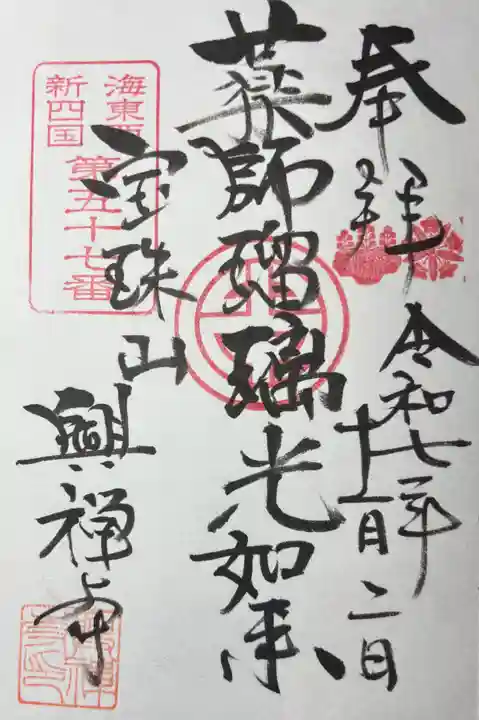 奉拝
令和七年
十一月二日
薬師瑠璃光如来
宝珠山
興禅寺
海東西
新四国
第五十七番